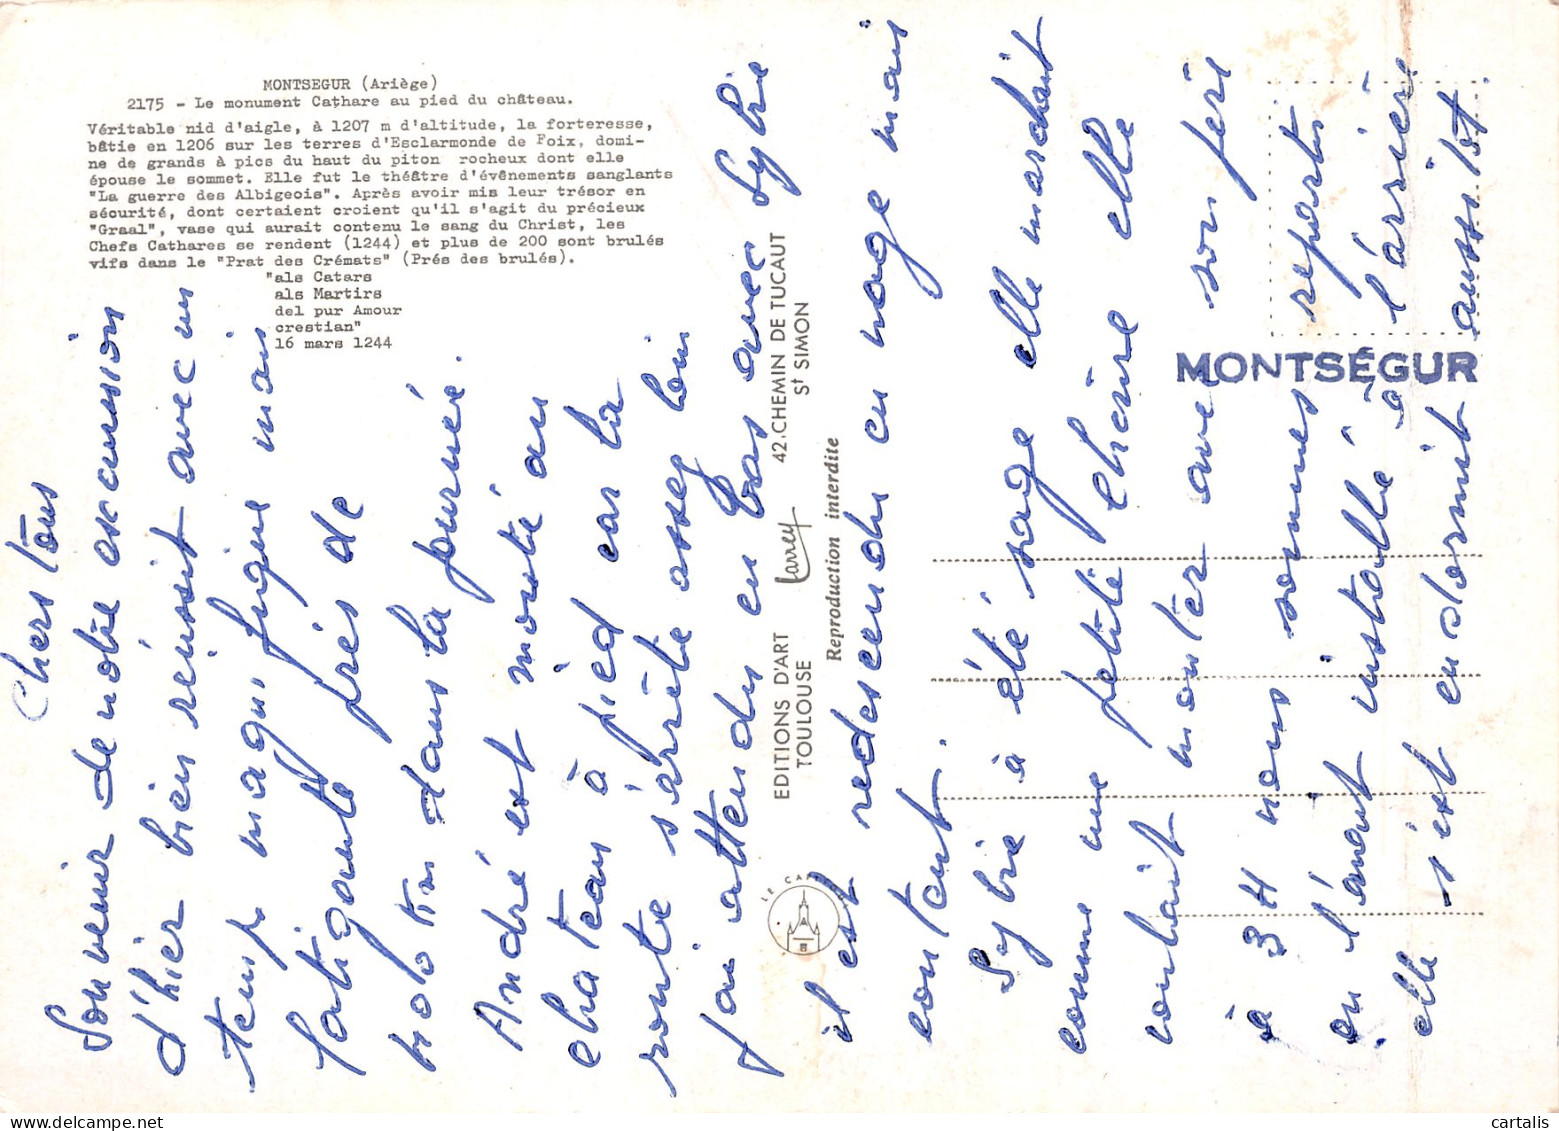 MONTSEGUR (Ariège)
2175 - Le monument Cathare au pied du château.
Véritable nid d'aigle, à 1207 m d'altitude, la forteresse,
bâtie en 1206 sur les terres d'Esclarmonde de Foix, domi-
ne de grands à pics du haut du piton rocheux dont elle
épouse le sommet. Elle fut le théâtre d'évênements sanglants
"La guerre des Albigeois". Après avoir mis leur trésor en
sécurité, dont certaient croient qu'il s'agit du précieux
"Graal", vase qui aurait contenu le sang du Christ, les
Chefs Cathares se rendent (1244) et plus de 200 sont brulés
vifs dans le "Prat des Crémats" (Prés des brulés).
"als Catars
als Martirs
del pur Amour
crestian"
16 mars 1244
Chers tous
Souvenir de notre excursion
d'hier bien réussit avec un
temps magnifique mais
fatigante près de
dans la journée.
André est monté au
chateau à pied car la
route s'arrête assez loin
j'ai attendu en bas avec Sylvie
il est redescendu en nage mais
content.
Sylvie à été sage elle marchait
comme une petite chèvre elle
voulait monter avec son père
à 3H nous sommes repartis
en l'ayant installé à l'arrière
elle s'est endormit aussitôt.
EDITIONS D'ART Larrey 42.CHEMIN DE TUCAUT
TOULOUSE St SIMON
Reproduction interdite
MONTSÉGUR
cartalis